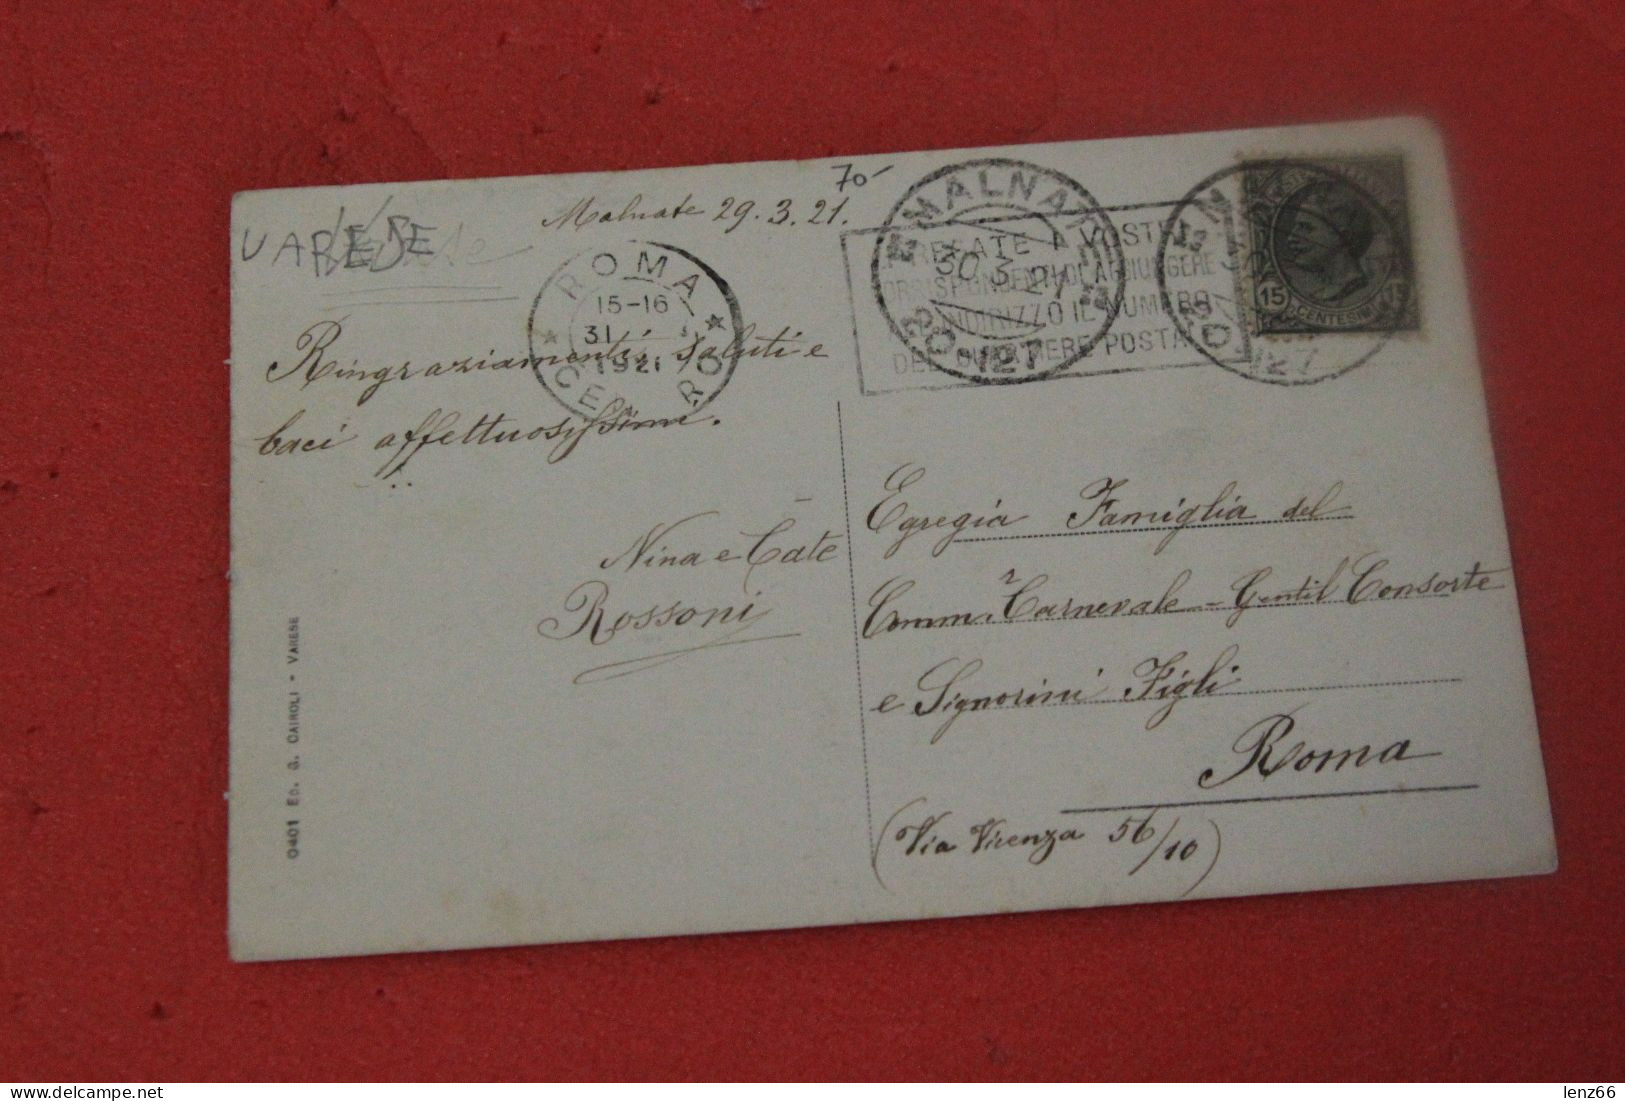 70-
Malnate 29.3.21.
VARESE
ROMA
15-16
31
1921
CE RO
MALNATE
30 3 21
127
PREGATE I VOSTRI
CORRISPONDENTI DI AGGIUNGERE
ALL'INDIRIZZO IL NUMERO
DEL QUARTIERE POSTALE
127
15
CENTESIMI
Ringraziamenti, saluti e
baci affettuosissimi.
Nina e Cate
Rossoni
Egregia Famiglia del
Comm.r Carnevale - Gentil Consorte
e Signorini Figli
Roma
(Via Vicenza 56/10)
0401 ED. G. CAIROLI - VARESE
delcampe.net
lenz66